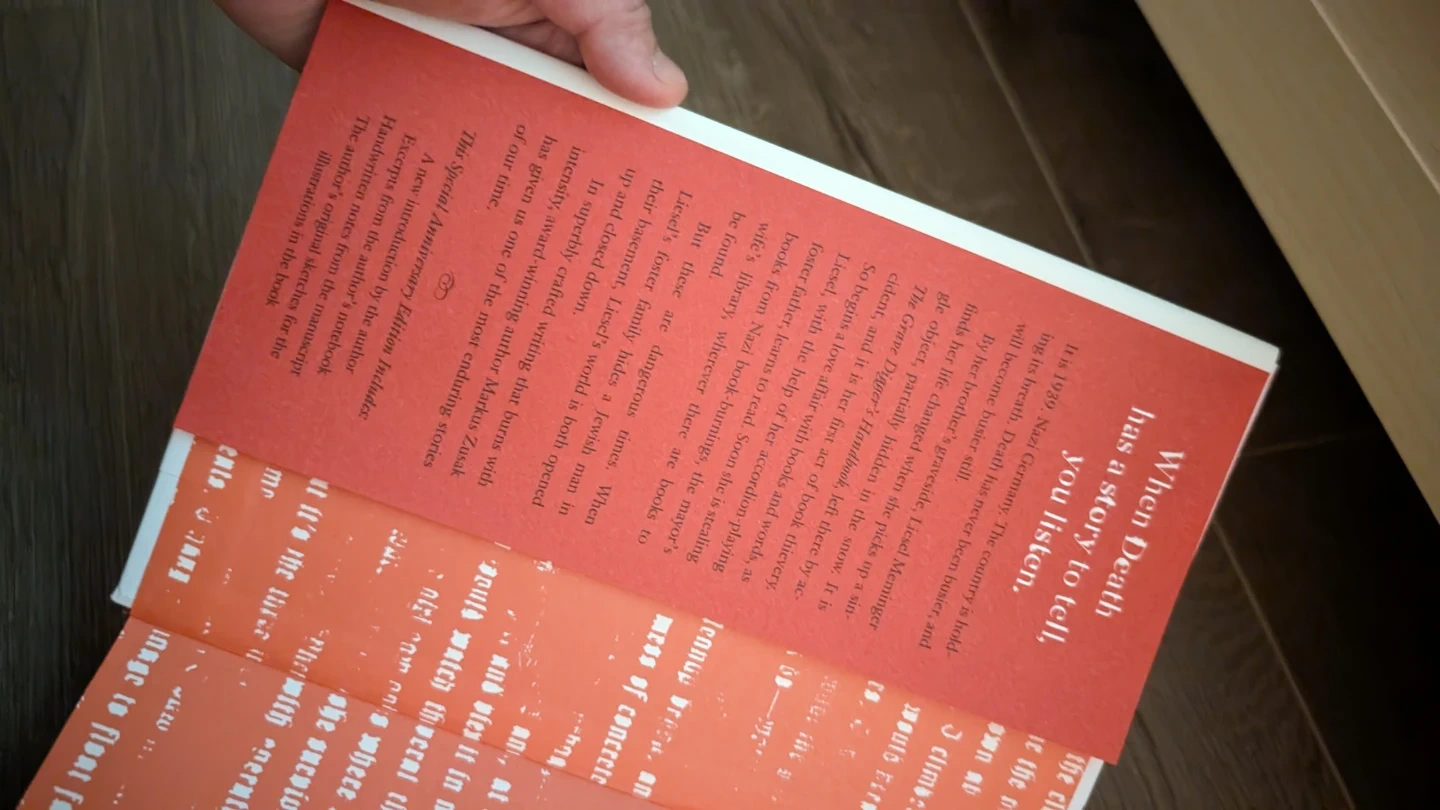 When Death
has a story to tell,
you listen.
It is 1939. Nazi Germany. The country is hold-
ing its breath. Death has never been busier, and
will become busier still.
By her brother's graveside, Liesel Meminger
finds her life changed when she picks up a sin-
gle object, partially hidden in the snow. It is
The Grave Digger's Handbook, left there by ac-
cident, and it is her first act of book thievery.
So begins a love affair with books and words, as
Liesel, with the help of her accordion-playing
foster father, learns to read. Soon she is stealing
books from Nazi book-burnings, the mayor's
wife's library, wherever there are books to
be found.
But these are dangerous times. When
Liesel's foster family hides a Jewish man in
their basement, Liesel's world is both opened
up and closed down.
In superbly crafted writing that burns with
intensity, award-winning author Markus Zusak
has given us one of the most enduring stories
of our time.
This Special Anniversary Edition Includes:
A new introduction by the author
Excerpts from the author's notebook
Handwritten notes from the manuscript
The author's original sketches for the
illustrations in the book
the
would
J climbe
mess of concrete
could watch
and
at
it's the
me
to float